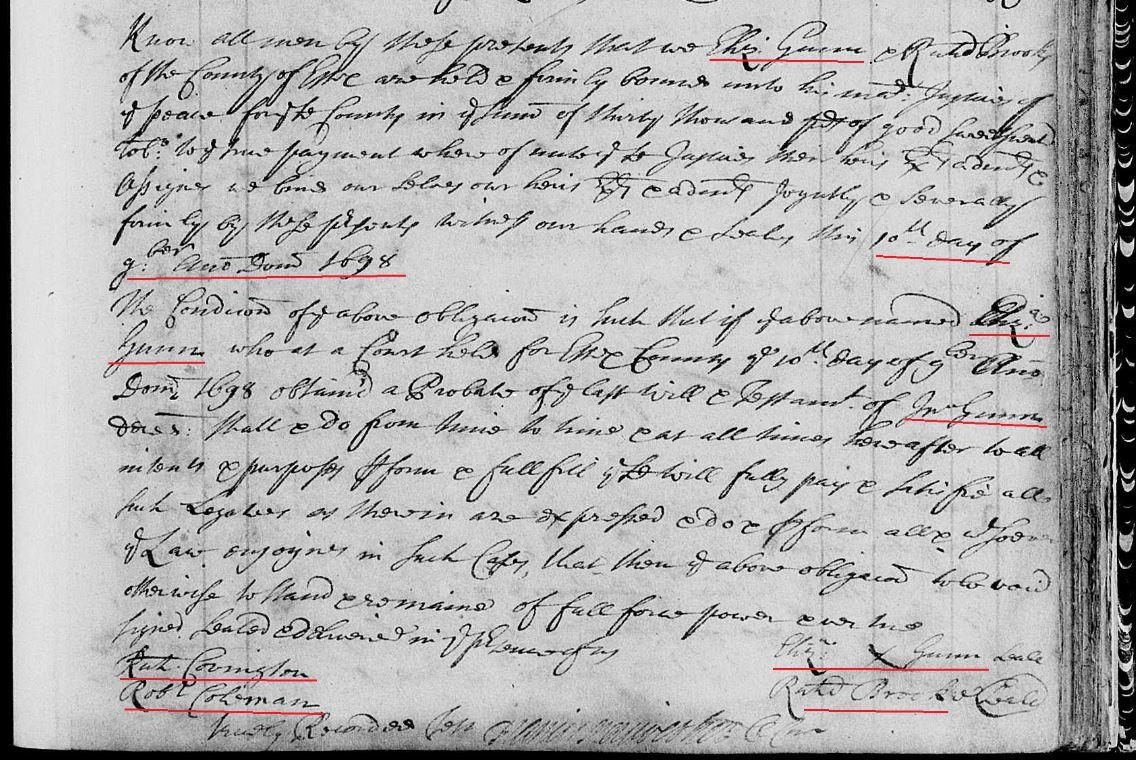 Know all men by these presents that we Eliz. Gunn & Richd Brooke
of the County of Essex are held & firmly bound unto his matis Justices of
ye peace for sd County in ye summ of thirty thousand pds of good sweetsented
tobo. to ye true payment where of unto ye sd Justices their heirs Exrs & admrs &
Assignes we bind our selves our heirs Exrs & admrs Joyntly & severally
firmly by these psents witness our hands & seales this 10th day of
9ber Ano Dom 1698
The Condicon of ye above obligacon is such that if ye above named Eliza
Gunn who at a Court held for Essex County ye 10th day of 9ber Ano
Dom 1698 obtain'd a Probate of ye last will & Testamt. of Jno Gunn
deced: shall & do from time to time & at all times hereafter to all
intents & purposes pform & fullfill ye sd will fully pay & satisfie all
such Legatees as therein are expressed & do & pform all &
ye Law enjoynes in such Cases, that then ye above obligacon to be void
otherwise to stand & remaine of full force power & vertue
signed sealed & delivered in ye psence of us
Eliz. X Gunn seale
Rich. Covington
Richd Brooke Seald
Robt Coleman
Truly Recorded Test Francis Meriwether Cl Cur